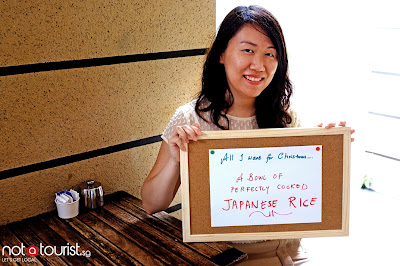 All I want for Christmas...
A BOWL OF
PERFECTLY COOKED
JAPANESE RICE
notatourist.sg
LET'S GET LOCAL